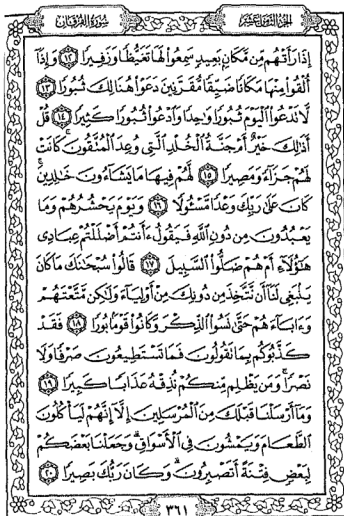 سُورَةُ الفُرْقَانِ
الجُزْءُ الثَّامِنَ عَشَرَ
إِذَا رَأَتْهُم مِّن مَّكَانٍ بَعِيدٍ سَمِعُوا لَهَا تَغَيُّظًا وَزَفِيرًا ١٢ وَإِذَآ
أُلْقُوا مِنْهَا مَكَانًا ضَيِّقًا مُّقَرَّنِينَ دَعَوْا هُنَالِكَ ثُبُورًا ١٣
لَّا تَدْعُوا الْيَوْمَ ثُبُورًا وَاحِدًا وَادْعُوا ثُبُورًا كَثِيرًا ١٤ قُلْ
أَذَٰلِكَ خَيْرٌ أَمْ جَنَّةُ الْخُلْدِ الَّتِي وُعِدَ الْمُتَّقُونَ كَانَتْ
لَهُمْ جَزَآءً وَمَصِيرًا ١٥ لَّهُمْ فِيهَا مَا يَشَآءُونَ خَٰلِدِينَ
كَانَ عَلَىٰ رَبِّكَ وَعْدًا مَّسْـُٔولًا ١٦ وَيَوْمَ يَحْشُرُهُمْ وَمَا
يَعْبُدُونَ مِن دُونِ اللَّهِ فَيَقُولُ ءَأَنتُمْ أَضْلَلْتُمْ عِبَادِي
هَٰٓؤُلَآءِ أَمْ هُمْ ضَلُّوا السَّبِيلَ ١٧ قَالُوا سُبْحَٰنَكَ مَا كَانَ
يَنۢبَغِي لَنَآ أَن نَّتَّخِذَ مِن دُونِكَ مِنْ أَوْلِيَآءَ وَلَٰكِن مَّتَّعْتَهُمْ
وَءَابَآءَهُمْ حَتَّىٰ نَسُوا الذِّكْرَ وَكَانُوا قَوْمًۢا بُورًا ١٨ فَقَدْ
كَذَّبُوكُم بِمَا تَقُولُونَ فَمَا تَسْتَطِيعُونَ صَرْفًا وَلَا
نَصْرًا وَمَن يَظْلِم مِّنكُمْ نُذِقْهُ عَذَابًا كَبِيرًا ١٩
وَمَآ أَرْسَلْنَا قَبْلَكَ مِنَ الْمُرْسَلِينَ إِلَّآ إِنَّهُمْ لَيَأْكُلُونَ
الطَّعَامَ وَيَمْشُونَ فِي الْأَسْوَاقِ وَجَعَلْنَا بَعْضَكُمْ
لِبَعْضٍ فِتْنَةً أَتَصْبِرُونَ وَكَانَ رَبُّكَ بَصِيرًا ٢٠
٣٦١